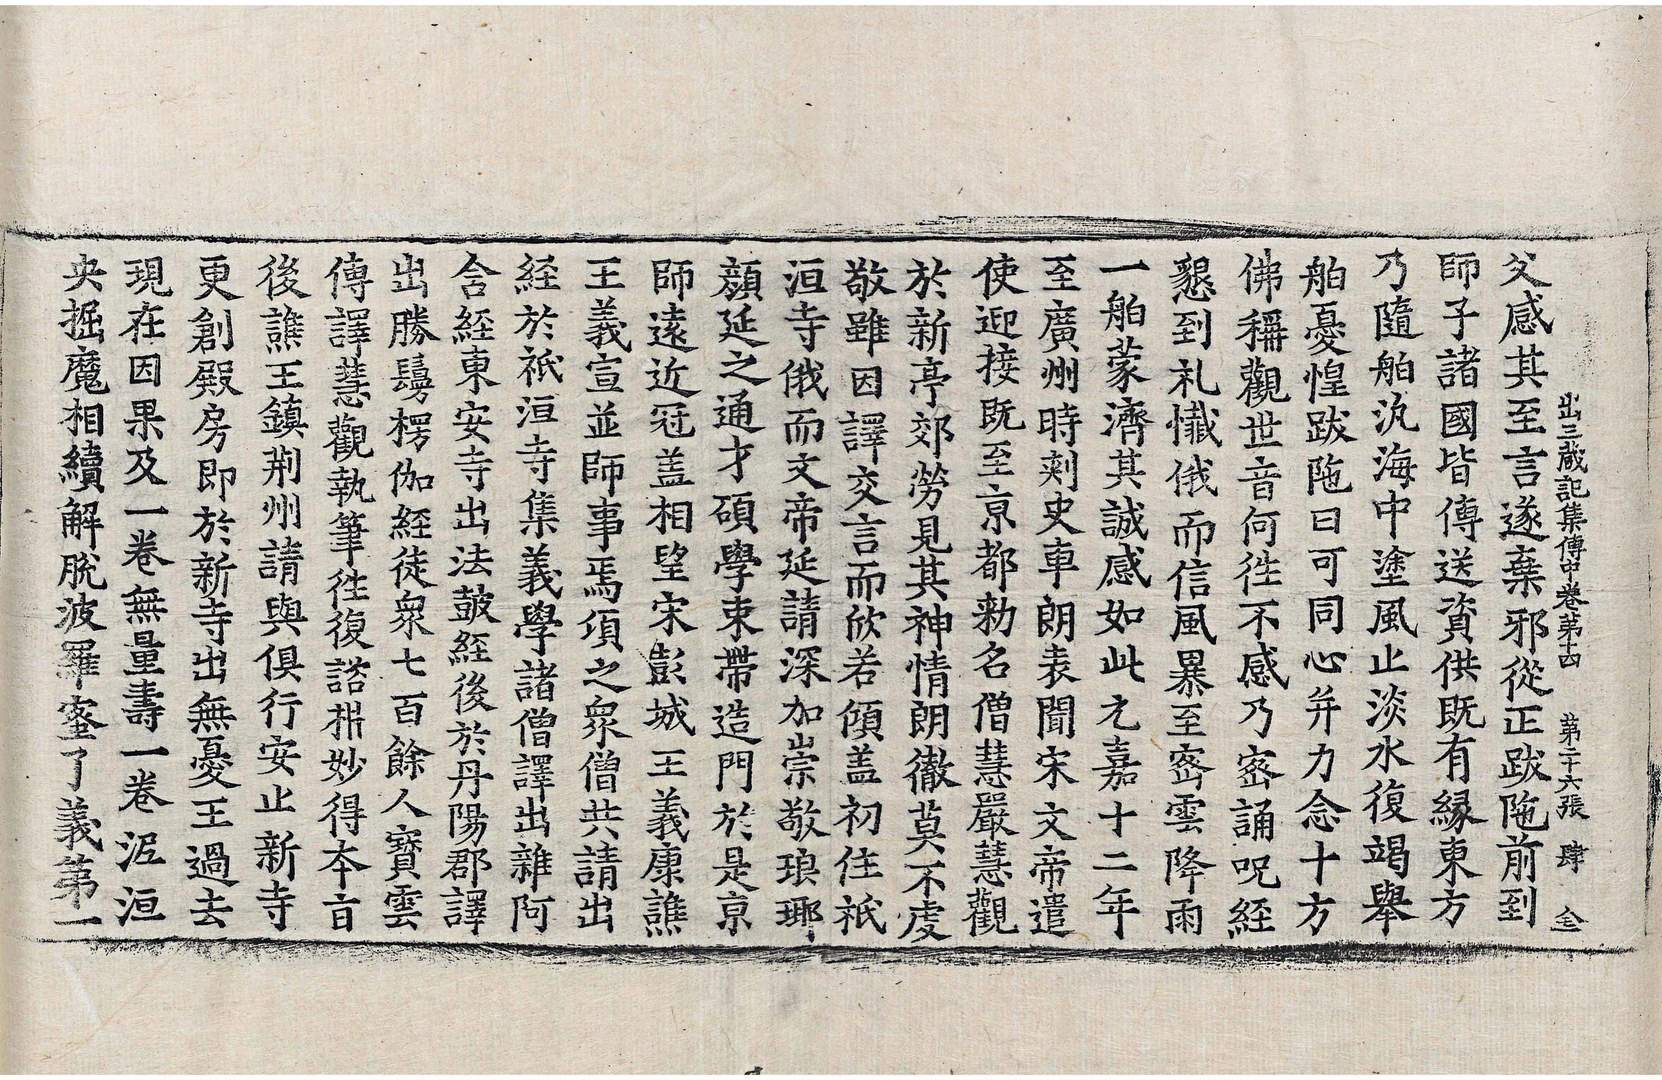 出三藏記集傳中卷第十四　第二十六張　肆　金
父感其至言遂棄邪從正跋陁前到
師子諸國皆傳送資供旣有緣東方
乃隨舶汎海中塗風止淡水復竭舉
舶憂惶跋陁曰可同心并力念十方
佛稱觀世音何徃不感乃密誦呪經
懇到礼懺俄而信風暴至密雲降雨
一舶蒙濟其誠感如此元嘉十二年
至廣州時刾史車朗表聞宋文帝遣
使迎接旣至京都勑名僧慧嚴慧觀
於新亭郊勞見其神情朗徹莫不虔
敬雖因譯交言而欣若傾盖初住祇
洹寺俄而文帝延請深加崇敬琅瑘
顏延之通才碩學束帶造門於是京
師遠近冠盖相望宋彭城王義康譙
王義宣並師事焉頃之衆僧共請出
経於祇洹寺集義學諸僧譯出雜阿
含経東安寺出法鼓経後於丹陽郡譯
出勝鬘楞伽経徒衆七百餘人寶雲
傳譯慧觀執筆徃復諮析妙得本旨
後譙王鎮荆州請與俱行安止新寺
更創殿房即於新寺出無憂王過去
現在因果及一卷無量壽一卷泥洹
央掘魔相續解脫波羅蜜了義第一